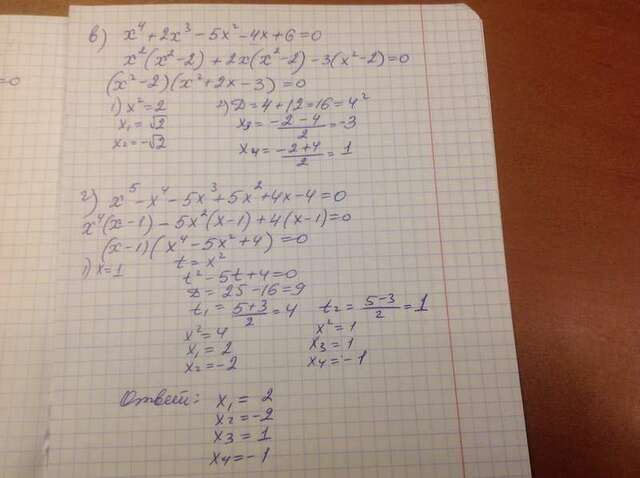 =0
в) x⁴+2x³-5x²-4x+6=0
x²(x²-2)+2x(x²-2)-3(x²-2)=0
(x²-2)(x²+2x-3)=0
1) x²=2 2) D=4+12=16=4²
x₁=√2 x₃=(-2-4)/2=-3
x₂=-√2 x₄=(-2+4)/2=1
г) x⁵-x⁴-5x³+5x²+4x-4=0
x⁴(x-1)-5x²(x-1)+4(x-1)=0
(x-1)(x⁴-5x²+4)=0
1) x=1 t=x²
t²-5t+4=0
D=25-16=9
t₁=(5+3)/2=4 t₂=(5-3)/2=1
x²=4 x²=1
x₁=2 x₃=1
x₂=-2 x₄=-1
Ответ: x₁=2
x₂=-2
x₃=1
x₄=-1